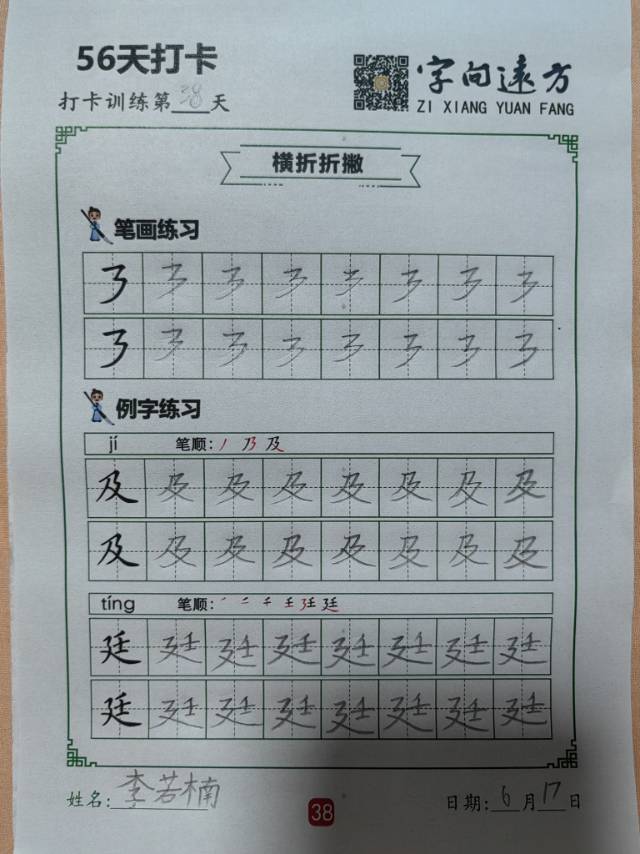 56天打卡
字向远方
打卡训练第38天
ZI XIANG YUAN FANG
横折折撇
笔画练习
㇋ ㇋ ㇋ ㇋ ㇋ ㇋ ㇋ ㇋
㇋ ㇋ ㇋ ㇋ ㇋ ㇋ ㇋ ㇋
例字练习
jí 笔顺: 丿 乃 及
及 及 及 及 及 及 及 及
及 及 及 及 及 及 及 及
tíng 笔顺: ㇒ 二 千 壬 廷 廷
廷 廷 廷 廷 廷 廷 廷 廷
廷 廷 廷 廷 廷 廷 廷 廷
姓名: 李若楠
38
日期: 6 月 17 日